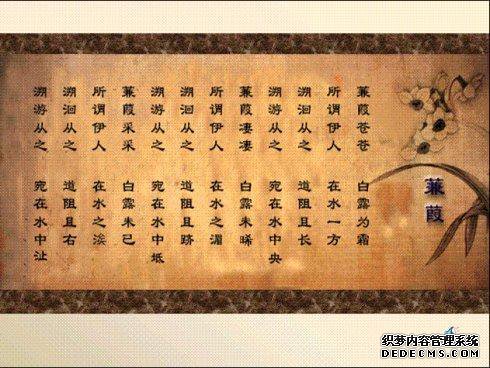 蒹葭
蒹葭苍苍 白露为霜
所谓伊人 在水一方
溯洄从之 道阻且长
溯游从之 宛在水中央
蒹葭凄凄 白露未晞
所谓伊人 在水之湄
溯洄从之 道阻且跻
溯游从之 宛在水中坻
蒹葭采采 白露未已
所谓伊人 在水之涘
溯洄从之 道阻且右
溯游从之 宛在水中沚
织梦内容管理系统
DEDECMS.COM